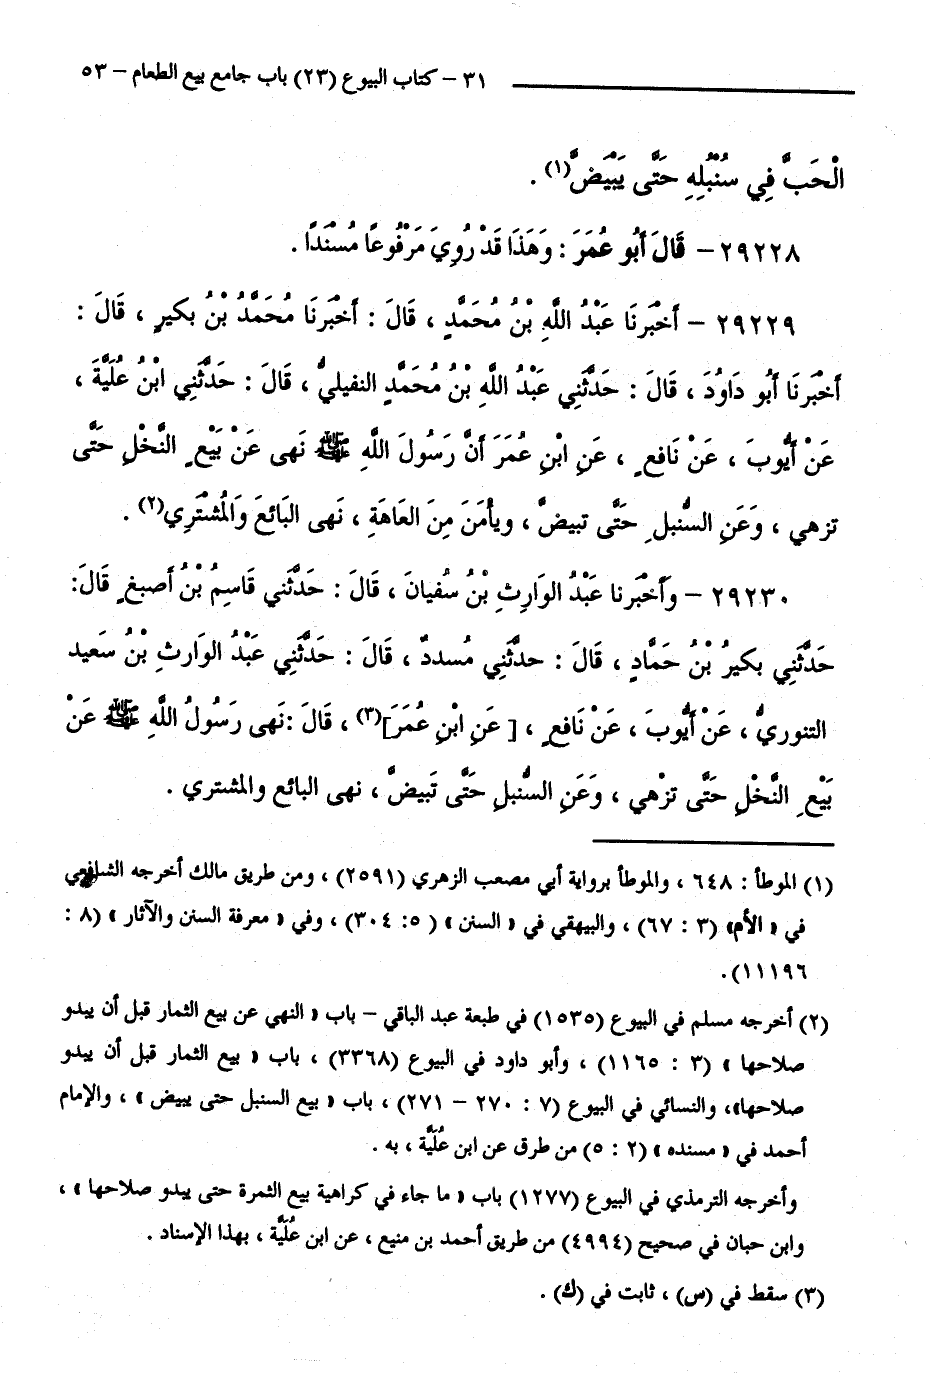 ٣١ – كتاب البيوع (٢٣) باب جامع بيع الطعام – ٥٣
الْحَبَّ فِي سُنْبُلِهِ حَتَّى يَبْيَضَّ(١) .
٢٩٢٢٨ – قَالَ أَبُو عُمَرَ : وَهَذَا قَدْ رُوِيَ مَرْفُوعًا مُسْنَدًا .
٢٩٢٢٩ – أَخْبَرَنَا عَبْدُ اللَّهِ بْنُ مُحَمَّدٍ ، قَالَ : أَخْبَرنَا مُحَمَّدُ بْنُ بكيرٍ ، قَالَ :
أَخْبَرنَا أَبُو دَاوُدَ ، قَالَ : حَدَّثَنِي عَبْدُ اللَّهِ بْنُ مُحَمَّدٍ النفيليُّ ، قَالَ : حَدَّثَنِي ابْنُ عُلَيَّةَ ،
عَنْ أَيُّوبَ ، عَنْ نَافعٍ ، عَنِ ابْنِ عُمَرَ أَنَّ رَسُولَ اللَّهِ ﷺ نَهى عَنْ بَيْعِ النَّخْلِ حَتَّى
تزهي ، وَعَنِ السُّنبلِ حَتَّى تبيضَّ ، ويأمَنَ مِنَ العَاهَةِ ، نَهى البَائعَ وَالْمُشْتَرِي(٢) .
٢٩٢٣٠ – وَأَخْبَرنا عَبْدُ الوَارِثِ بْنُ سُفيانَ ، قَالَ : حَدَّثَني قَاسِمُ بْنُ أَصبغٍ قَالَ:
حَدَّثَنِي بكيرُ بْنُ حَمَّادٍ ، قَالَ : حدثَّنِي مُسددٌ ، قَالَ : حَدَّثَنِي عَبْدُ الوَارثِ بْنُ سَعيد
التنوريُّ ، عَنْ أَيُّوبَ ، عَنْ نَافعٍ ، [ عَنِ ابْنِ عُمَرَ](٣) ، قَالَ :نَهى رَسُولُ اللَّهِ ﷺ عَنْ
بَيْعِ النَّخْلِ حَتَّى تزْهي ، وَعَنِ السُّنبلِ حَتَّى تَبيضَّ ، نهى البائع والمشتري .
(١) الموطأ : ٦٤٨ ، والموطأ برواية أبي مصعب الزهري (٢٥٩١) ، ومن طريق مالك أخرجه الشافعي
في « الأم» (٣ : ٦٧) ، والبيهقي في « السنن » ( ٥: ٣٠٤) ، وفي « معرفة السنن والآثار » (٨ :
١١١٩٦).
(٢) أخرجه مسلم في البيوع (١٥٣٥) في طبعة عبد الباقي – باب « النهي عن بيع الثمار قبل أن يبدو
صلاحها » (٣ : ١١٦٥) ، وأبو داود في البيوع (٣٣٦٨) ، باب « بيع الثمار قبل أن يبدو
صلاحها»، والنسائي في البيوع (٧ : ٢٧٠ – ٢٧١) ، باب « بيع السنبل حتى يبيض » ، والإمام
أحمد في « مسنده » (٢ : ٥) من طرق عن ابن عُلَيَّة ، به .
وأخرجه الترمذي في البيوع (١٢٧٧) باب « ما جاء في كراهية بيع الثمرة حتى يبدو صلاحها » ،
وابن حبان في صحيح (٤٩٩٤) من طريق أحمد بن منيع ، عن ابن عُلَيَّة ، بهذا الإسناد .
(٣) سقط في (س) ، ثابت في (ك) .